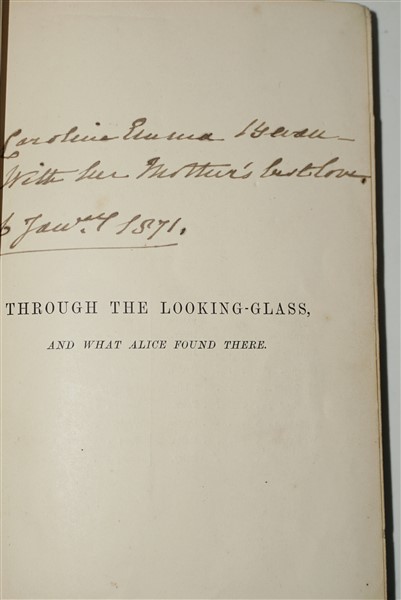 Caroline Emma Bevan
With her Mother's best love.
6 Janry 1871.
THROUGH THE LOOKING-GLASS,
AND WHAT ALICE FOUND THERE.